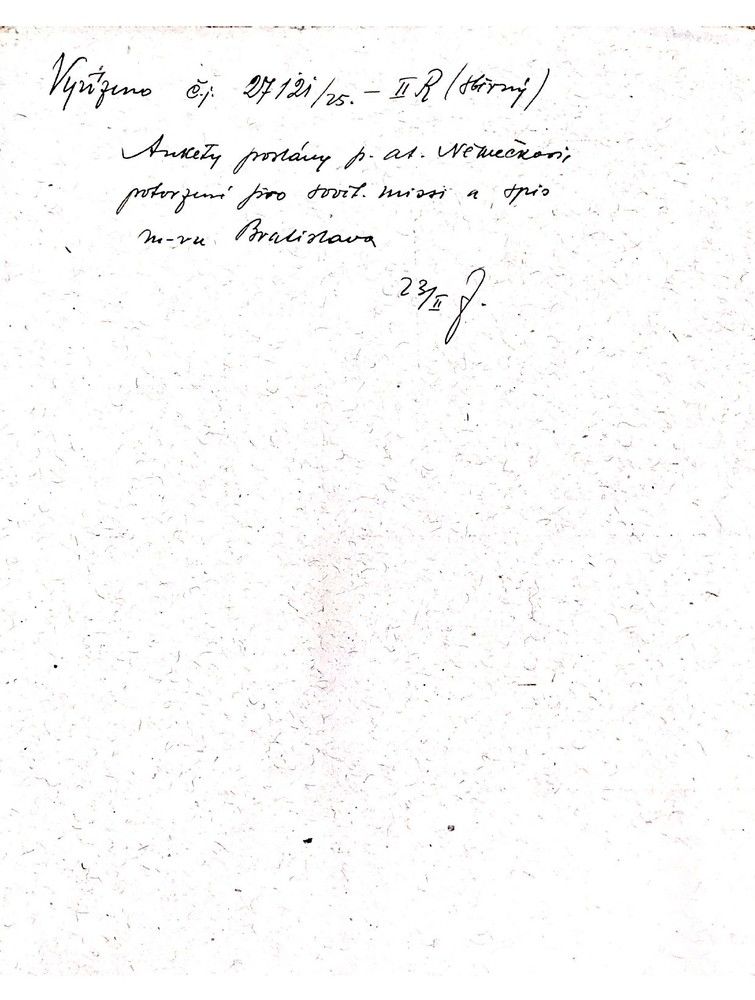 Vyřízeno č.j. 27121/25. – II R (sběrný)
Ankety poslány p. at. Němečkovi,
potvrzení pro sovět. missi a spis
m-vu Bratislava
23/II J.